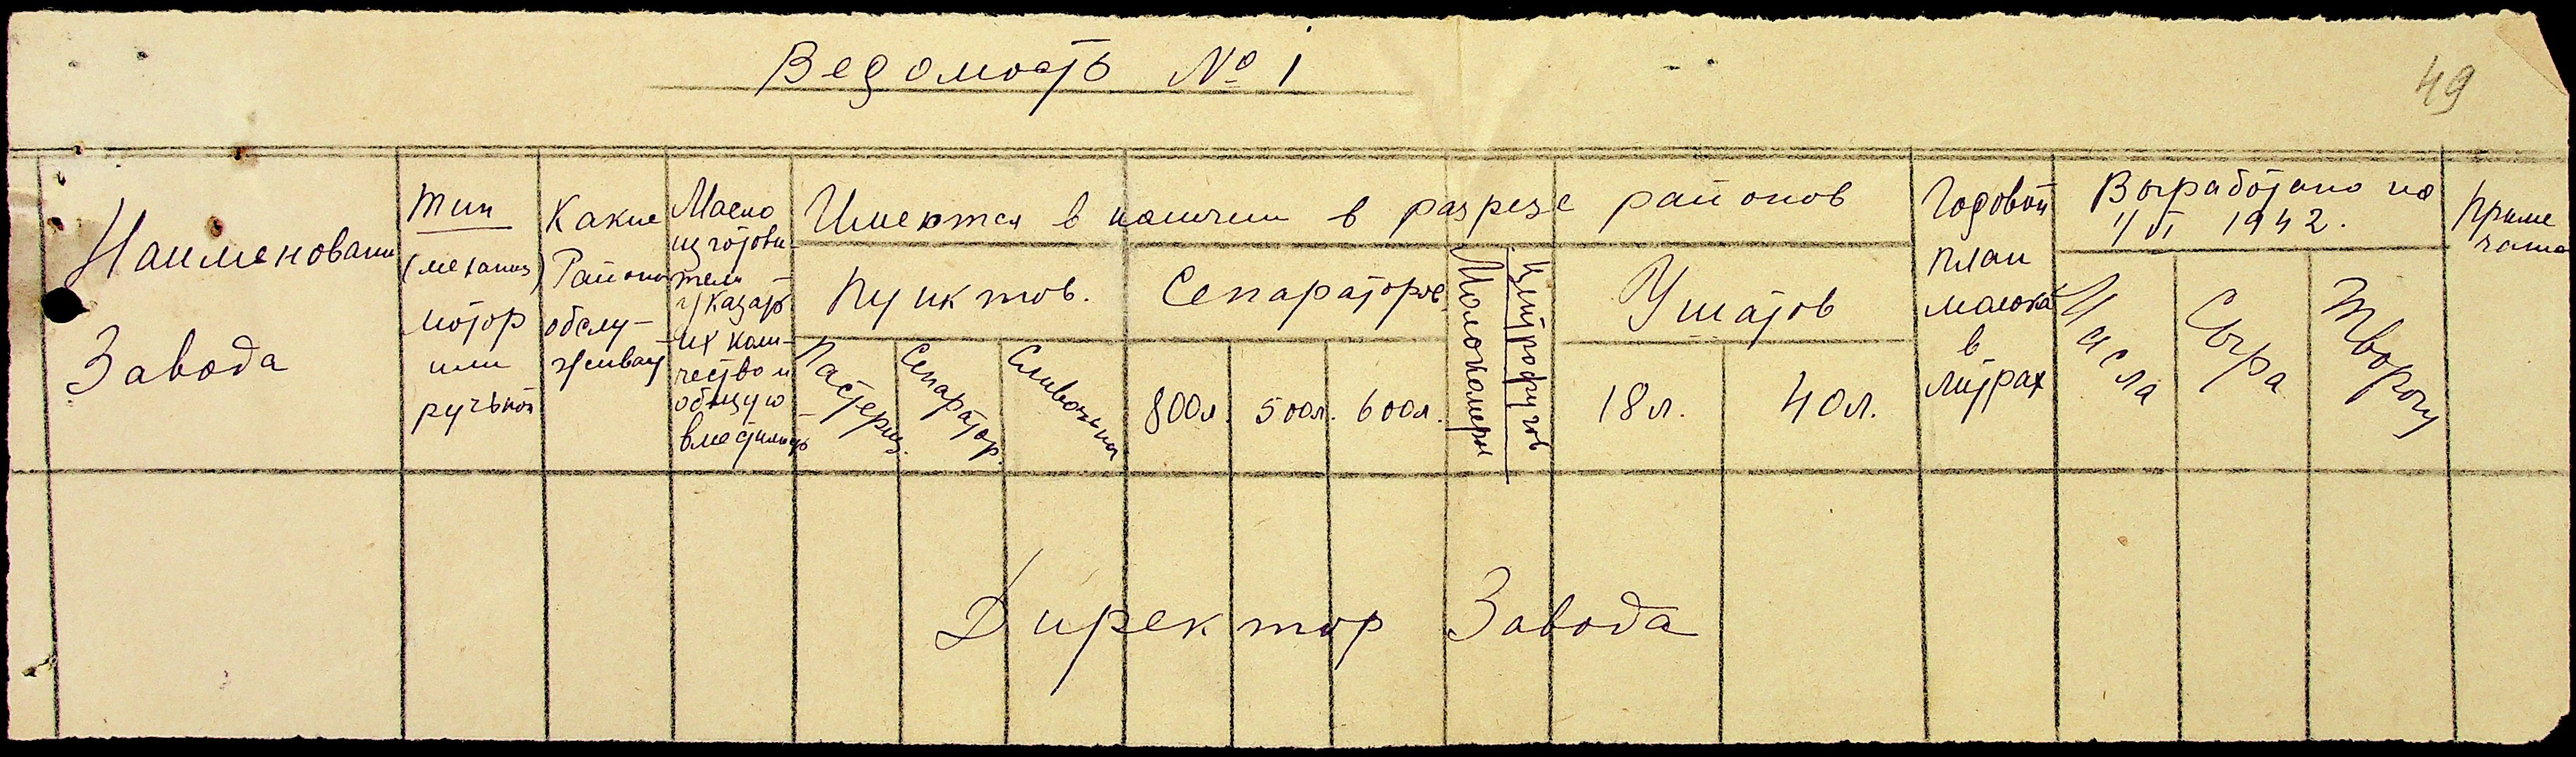 Ведомость № 1
49
Наименовани
Завода
Тип
(механиз)
мотор
или
ручьной
Какие
Районы
обслу-
живает
Масло
изготови-
тели
указать
их коли-
чество и
общую
вместимость
Имеются в наличии в разрезе районов
Пунктов.
Пастериз.
Сепаратор.
Сливочных
Сепараторов
800л.
500л.
600л.
Молокомеры
Центрофугов
Ушатов
18л.
40л.
Годовой
план
молока
в
литрах
Выработано на
1/VI 1942.
Масла
Сыра
Творогу
Приме
чание
Директор Завода